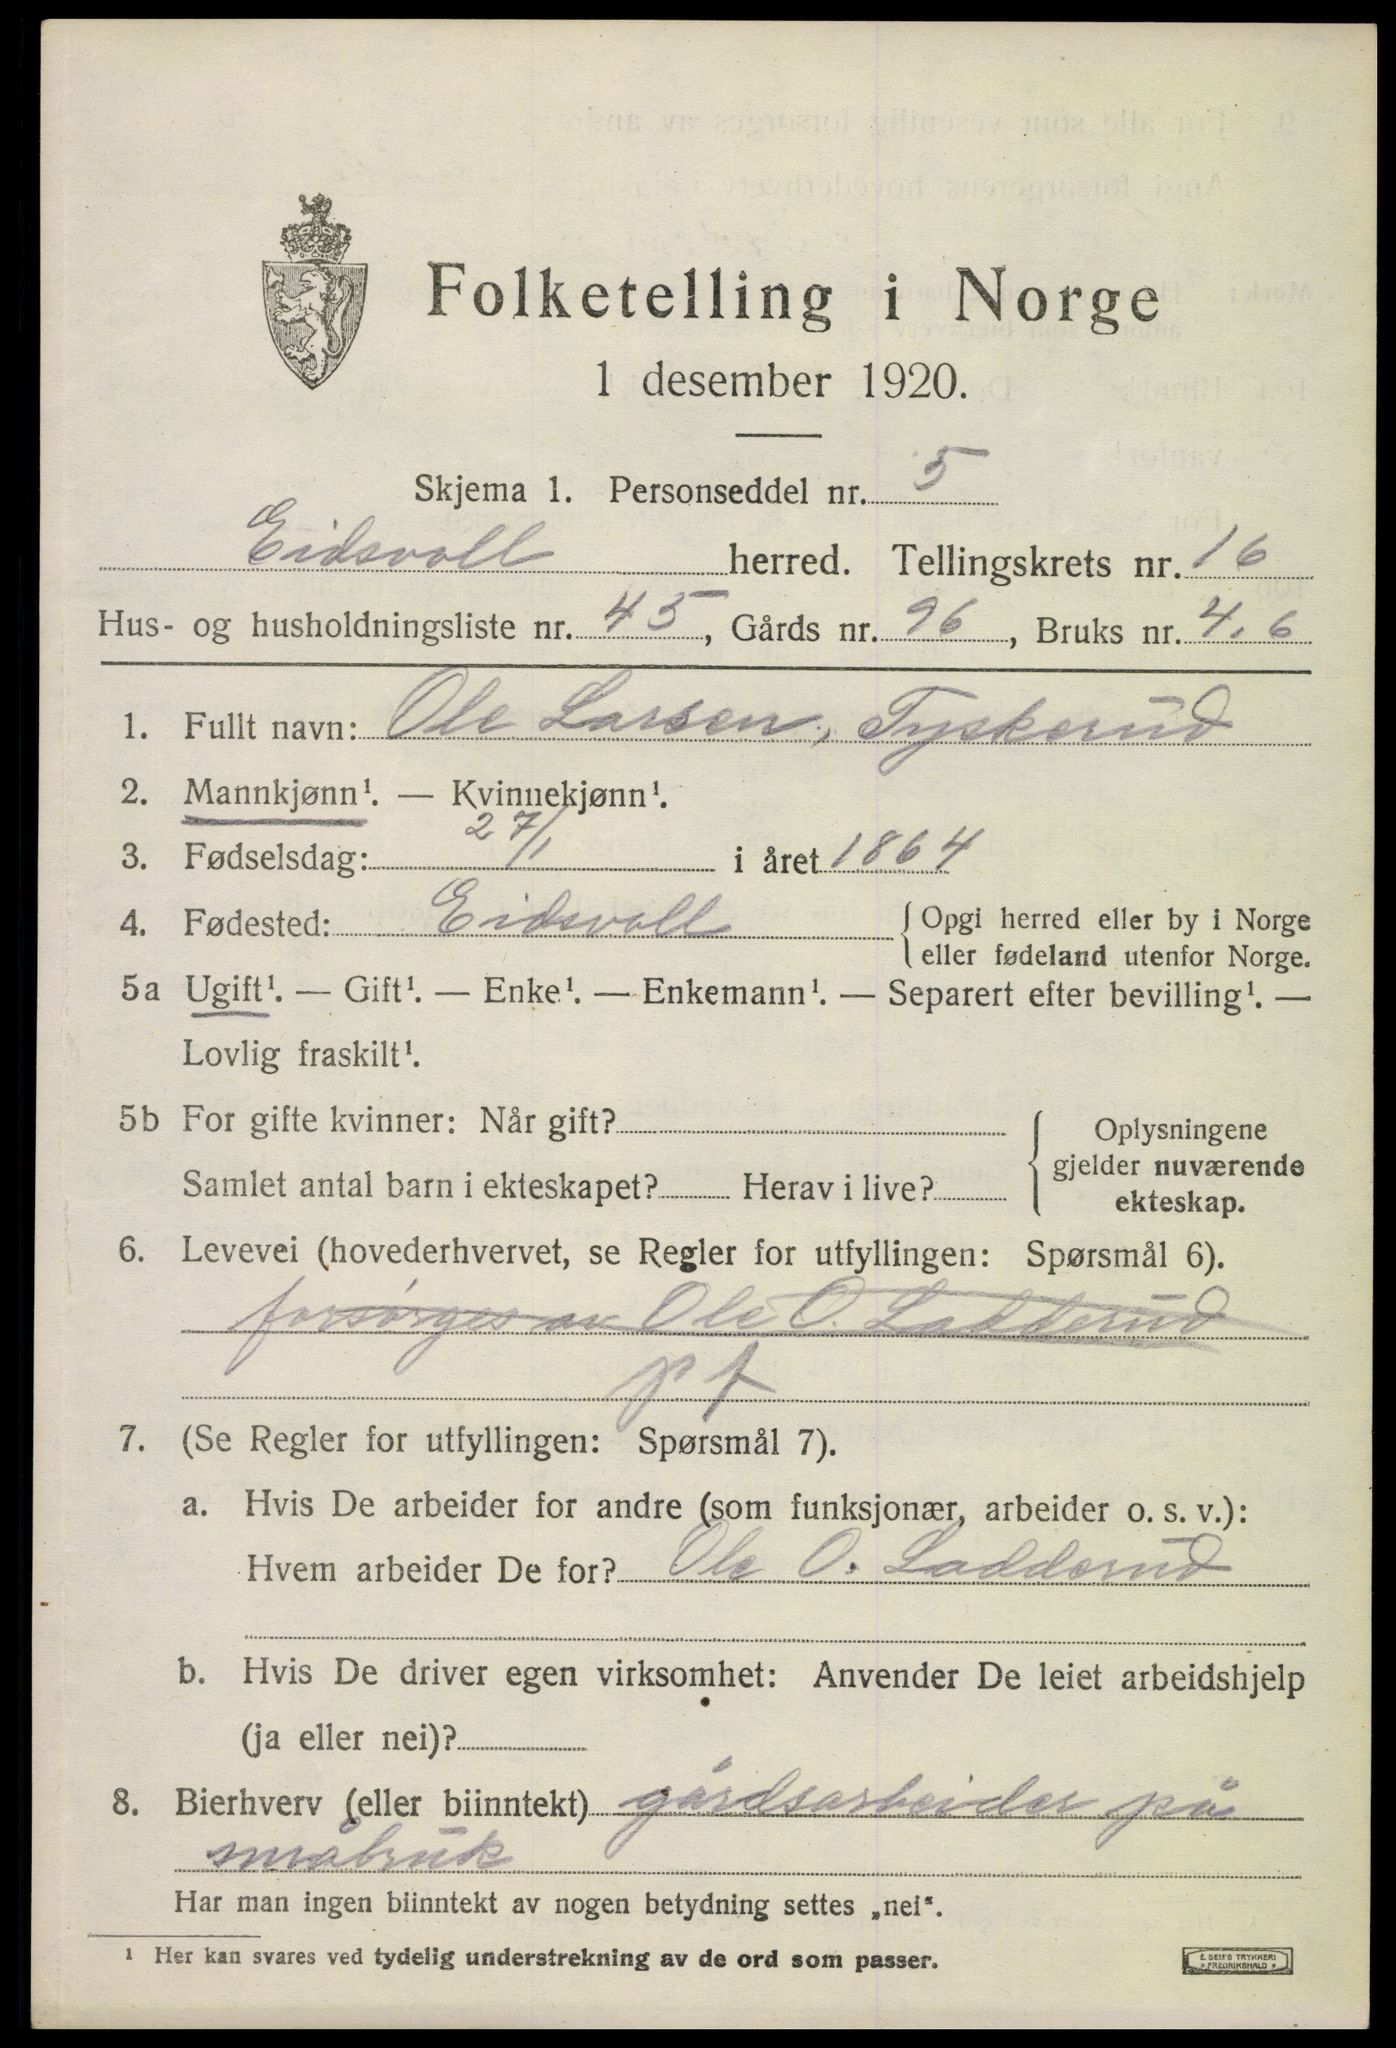 Folketelling i Norge
1 desember 1920.
Skjema 1. Personseddel nr. 5
Eidsvoll herred. Tellingskrets nr. 16
Hus- og husholdningsliste nr. 45, Gårds nr. 96, Bruks nr. 4,6
1. Fullt navn: Ole Larsen, Tyskerud
2. Mannkjønn¹. — Kvinnekjønn¹.
3. Fødselsdag: 27/1 i året 1864
4. Fødested: Eidsvoll { Opgi herred eller by i Norge
eller fødeland utenfor Norge.
5a Ugift¹. — Gift¹. — Enke¹. — Enkemann¹. — Separert efter bevilling¹. —
Lovlig fraskilt¹.
5b For gifte kvinner: Når gift?
Samlet antal barn i ekteskapet? Herav i live?
Oplysningene
gjelder nuværende
ekteskap.
6. Levevei (hovederhvervet, se Regler for utfyllingen: Spørsmål 6).
forsørges av Ole O. Ladderud
p f
7. (Se Regler for utfyllingen: Spørsmål 7).
a. Hvis De arbeider for andre (som funksjonær, arbeider o. s. v.):
Hvem arbeider De for? Ole O. Ladderud
b. Hvis De driver egen virksomhet: Anvender De leiet arbeidshjelp
(ja eller nei)?
8. Bierhverv (eller biinntekt) gårdsarbeider på
småbruk
Har man ingen biinntekt av nogen betydning settes „nei".
¹ Her kan svares ved tydelig understrekning av de ord som passer.
E. SEM'S TRYKKERI
FREDRIKSHALD